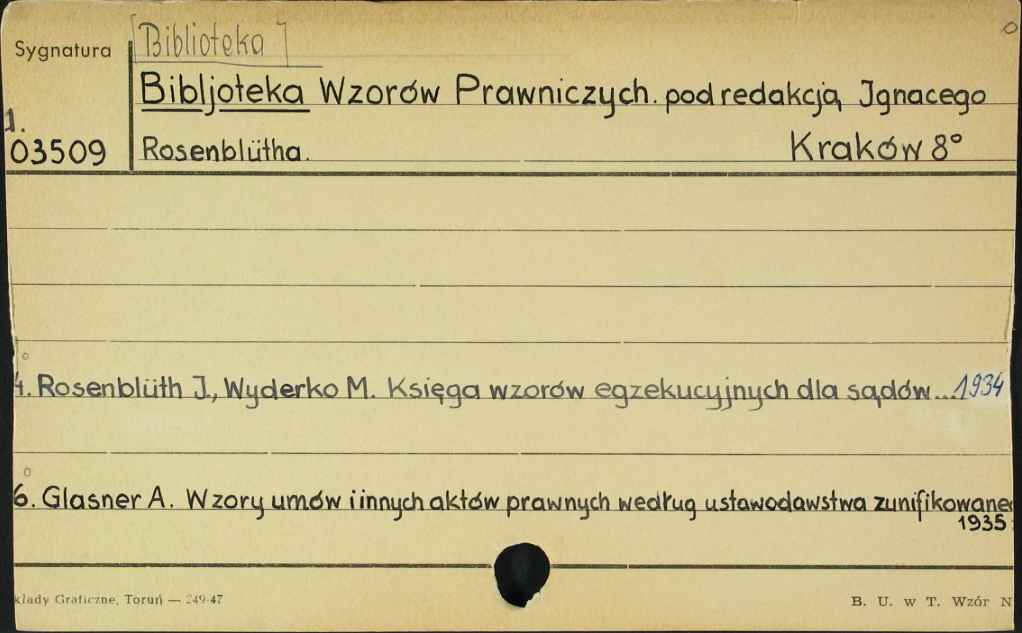 Sygnatura [Biblioteka]
Bibljoteka Wzorów Prawniczych. pod redakcją Ignacego
1.
03509 Rosenblütha. Kraków 8°
4. Rosenblüth J., Wyderko M. Księga wzorów egzekucyjnych dla sądów... 1934
6. Glasner A. Wzory umów i innych aktów prawnych według ustawodawstwa zunifikowaneg
1935
kłady Graficzne, Toruń — 249-47 B. U. w T. Wzór N